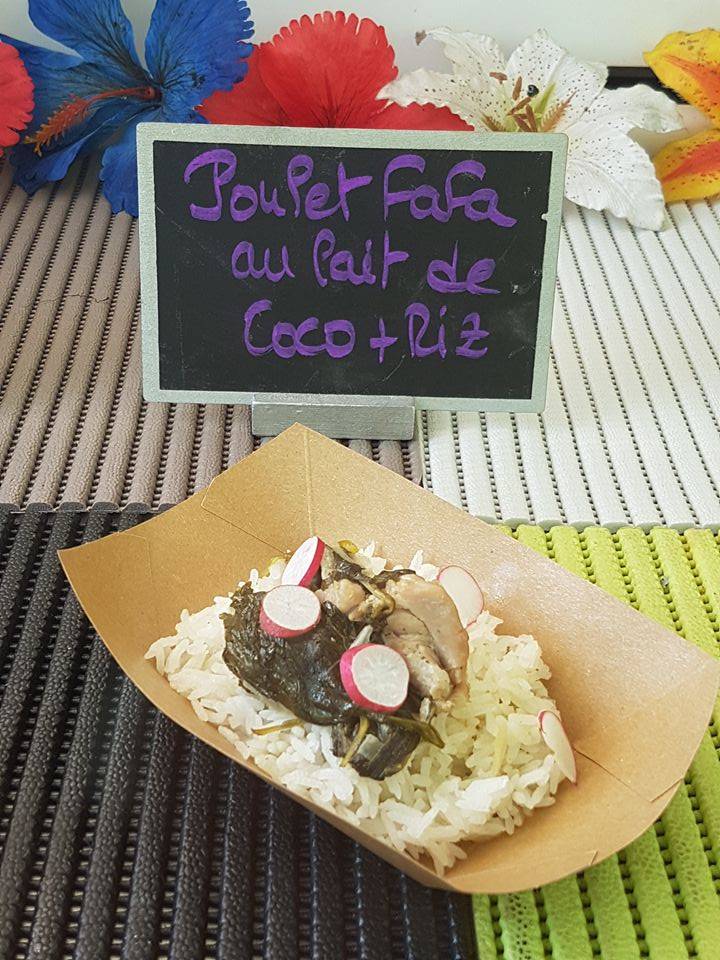 Poulet Fafa
au lait de
Coco + Riz